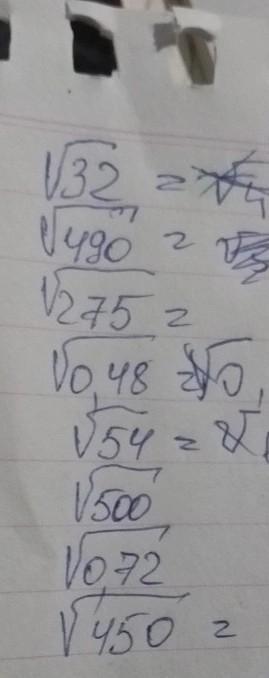 √32 =
√490 =
√275 =
√0,48 = √0,
√54 =
√500
√0,72
√450 =